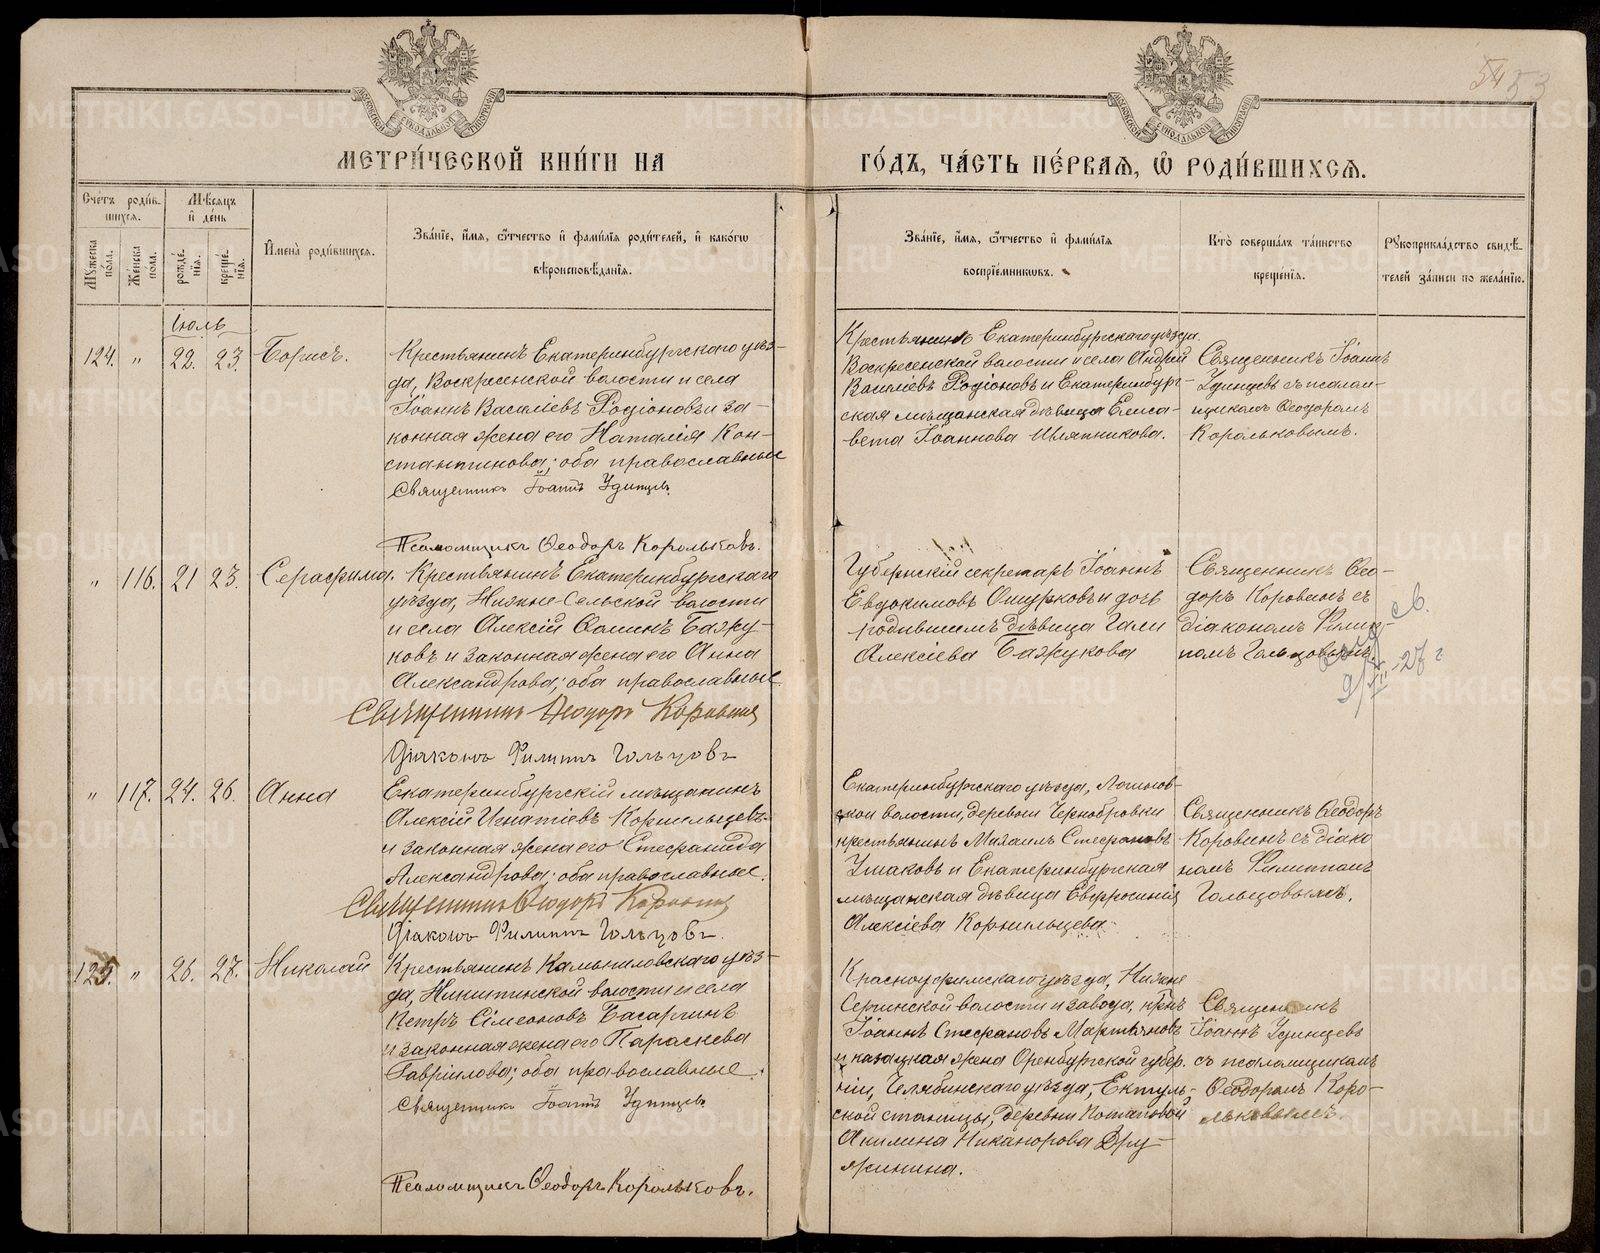 54 53
МЕТРИ́ЧЕСКОЙ КНИ́ГИ НА
ГО́ДЪ, ЧА́СТЬ ПЕ́РВАЯ, Ѡ РОДИ́ВШИХСЯ.
Сче́тъ роди́вшихся.
Му́жеска пола.
Же́нска пола.
Мѣ́сяцъ и де́нь
рожде́нїя.
креще́нїя.
И́мена роди́вшихся.
Зва́нїе, и́мя, ѻ́тчество и фами́лїя роди́телей, и како́гѡ
вѣроисповѣ́данїя.
Зва́нїе, и́мя, ѻ́тчество и фами́лїя
воспрїе́мникѡвъ.
Кто̀ соверша́лъ та́инство
креще́нїя.
Рукоприкла́дство свидѣ́телей за́писи по жела́нїю.
Іюль
124. " 22. 23. Борисъ.
Крестьянинъ Екатеринбургскаго уѣз-
да, Воскресенской волости и села
Іоаннъ Василіевъ Родіоновъ и за-
конная жена его Наталія Кон-
стантинова; оба православные
Священникъ Іоаннъ Удинцевъ.
Псаломщикъ Ѳеодоръ Корольковъ.
Крестьянинъ Екатеринбургскаго уѣзда
Воскресенской волости и села Андрей
Василіевъ Родіоновъ и Екатеринбург-
ская мѣщанская дѣвица Елиса-
вета Іоаннова Шляпникова.
Священникъ Іоаннъ
Удинцевъ съ псалом-
щикомъ Ѳеодоромъ
Корольковымъ.
" 116. 21 23. Серафима.
Крестьянинъ Екатеринбургскаго
уѣзда, Нижне-Сельской волости
и села Алексій Ѳоминъ Бажу-
ковъ и законная жена его Анна
Александрова; оба православные
Священникъ Ѳеодоръ Коровинъ
Діаконъ Филиппъ Гольцовъ
Губернскій секретарь Іоаннъ
Евдокимовъ Ошурковъ и дочь
родившимъ дѣвица
Алексіева Бажукова
Священникъ Ѳео-
доръ Коровинъ съ
діакономъ Филип-
помъ Гольцовымъ
св.
9/ 27 г
" 117. 24. 26. Анна
Екатеринбургскій мѣщанинъ
Алексій Игнатіевъ Корнильцевъ
и законная жена его Стефанида
Александрова; оба православные.
Священникъ Ѳеодоръ Коровинъ
Діаконъ Филиппъ Гольцовъ.
Екатеринбургскаго уѣзда, Логинов-
ской волости, деревни Чернобровки
крестьянинъ Михаилъ Стефановъ
Ушаковъ и Екатеринбургская
мѣщанская дѣвица Евфросинія
Алексіева Корнильцева.
Священникъ Ѳеодоръ
Коровинъ съ діако
номъ Филиппомъ
Гольцовымъ.
125. " 26. 27. Николай
Крестьянинъ Камышловскаго уѣз-
да, Никитинской волости и села
Петръ Сімеоновъ Басаргинъ
и законная жена его Параскева
Гавріилова; оба православные.
Священникъ Іоаннъ Удинцевъ
Псаломщикъ Ѳеодоръ Корольковъ.
Красноуфимскаго уѣзда, Нижне
Сергинской волости и завода, кр-нъ
Іоаннъ Стефановъ Мартьяновъ
и казацкая жена Оренбургской губер-
ніи, Челябинскаго уѣзда, Ектуль-
ской станицы, деревни Потаповой
Акилина Никанорова Дру-
жинина.
Священникъ
Іоаннъ Удинцевъ
съ псаломщикомъ
Ѳеодоромъ Коро-
льковымъ.